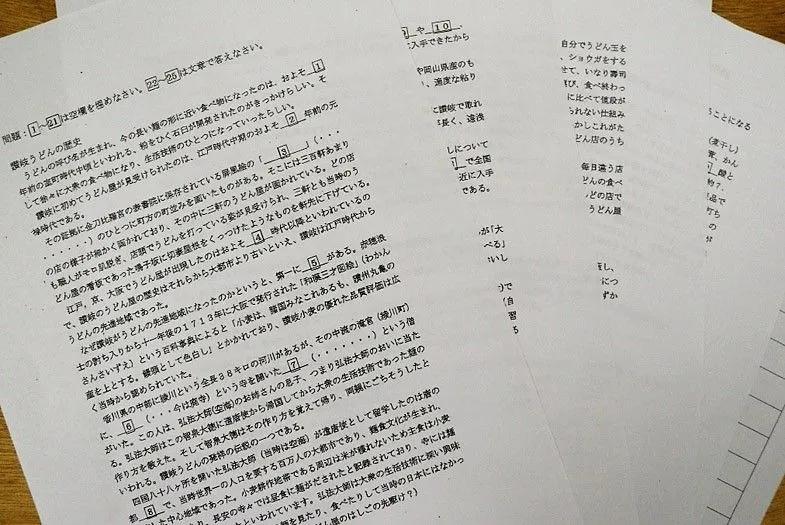 問題：1～21は空欄を埋めなさい。22～25は文章で答えなさい。
讃岐うどんの歴史
うどんの呼び名が生まれ、今の長い麺の形に近い食べ物になったのは、およそ 1
年前の室町時代中頃といわれる、粉をひく石臼が開発されたのがきっかけらしい。そ
して徐々に大衆の食べ物になり、生活技術のひとつになっていったらしい。
讃岐に初めてうどん屋が見受けられたのは、江戸時代中期のおよそ 2 年前の元
禄時代である。
その証拠に金刀比羅宮の表書院に保存されている屏風絵の「 3 」(・・・
・・・・・・・)のひとつに町方の町並みを画いたものがある。そこには三百軒あまり
の店の様子が細かく画かれており、その中に三軒のうどん屋が画かれている。どの店
も職人がモロ肌脱ぎ、店頭でうどんを打っている姿が見受けられ、三軒とも当時のう
どん屋の看板であった
をくっつけたようなものを軒先に下げている。
江戸、京、大阪でうどん屋が出現したのはおよそ 4 時代以降といわれているの
で、讃岐のうどん屋の歴史はそれらから大都市より古いといえ、讃岐は江戸時代から
うどんの先進地域であった。
なぜ讃岐がうどんの先進地域になったのかというと、第一に 5 がある。赤穂浪
士の討ち入りから十一年後の1713年に大阪で発行された「和漢三才図絵」(わかん
さんさいずえ)という百科事典によると「小麦は、諸国みなこれあるも、讃州丸亀の
産を上とする。饅頭として色白し」とかかれており、讃岐小麦の優れた品質評価は広
く当時から認められていた。
香川県の中部に綾川という全長38キロの河川があるが、その中流の滝宮(綾川町)
に、 6 (・・・今は廃寺)という寺を開いた 7 (・・・・・・・)という僧
がいた。この人は、弘法大師(空海)のお姉さんの息子、つまり弘法大師のおいに当た
る。弘法大師はこの智泉大徳に遣唐使から帰国してから大衆の生活技術であった麺の
作り方を教えた。そして智泉大徳はその作り方を覚えて帰り、両親にごちそうしたと
いわれる。讃岐うどんの発祥の伝説の一つである。
四国八十八ヶ所を開いた弘法大師(当時は空海)が遣唐使として留学したのは唐の
都 8 で、当時世界一の人口を要する百万人の大都市であり、麺食文化が生まれ、
した中心地域であった。小麦耕作地帯である周辺は米が穫れないため主食は小麦
であり、長安の寺々では昼食に麺がだされたと記録されており、寺には麺
といわれています。弘法大師は大衆の生活技術に深い興味
師を見たり、食べたりして当時の日本にはなかっ
どん屋のはしごの先駆け？)
や 10 、
に入手できたから
や岡山県産のも
、適度な粘り
に讃岐で取れ
長く、遠浅
しについて
で全国
近に入手
である。
が「大
べる」
いし
)で
(自
習
自分でうどん玉を
、ショウガをする
せて、いなり寿司
び、食べ終わっ
に比べて値段が
られない仕組み
かしこれがた
どん店のうち
毎日違う店
どんの食べ
の店で
うどん屋
至し、
につ
ずか
ることになる
(煮干し)
、かん
酸と
約7.
品で
打ち
の